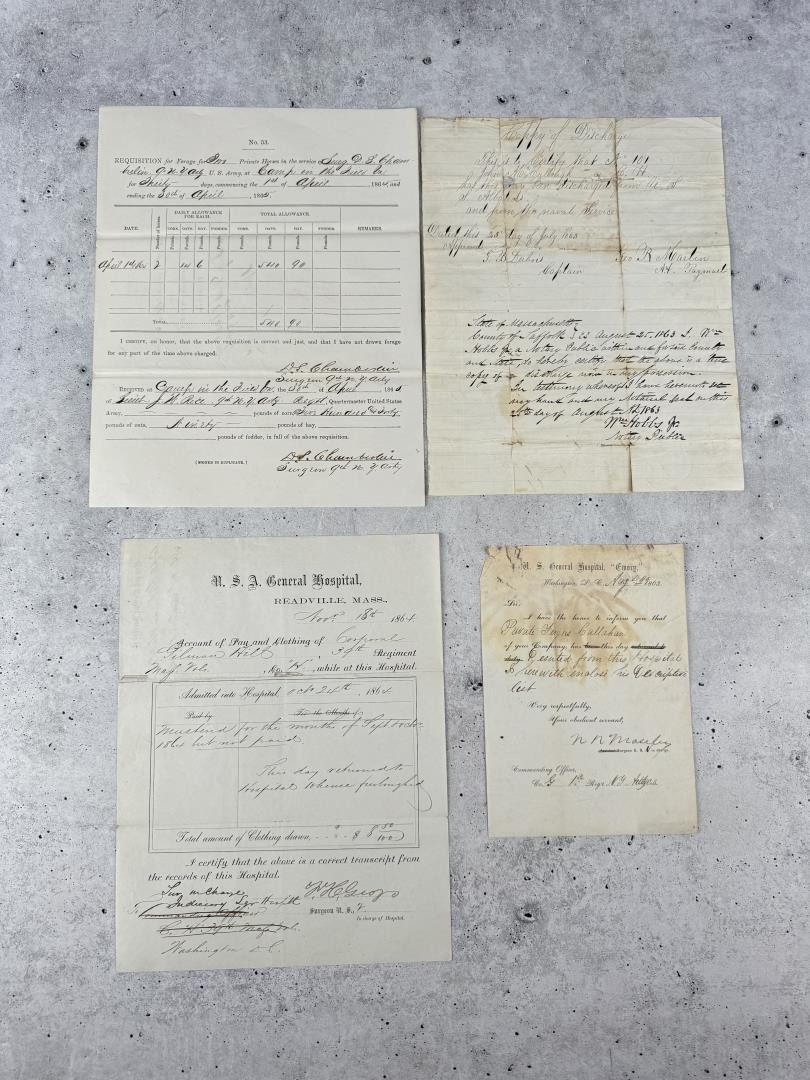 No. 53.
REQUISITION for Forage for Two Private Horses in the service Surg D. S. Cham
berlin 9. N.Y. Arty U. S. Army, at Camp in the Field Va.
for Thirty days, commencing the 1st of April 1865, and
ending the 30th of April, 1865.
DATE. Number of horses. DAILY ALLOWANCE FOR EACH. TOTAL ALLOWANCE. REMARKS.
CORN. OATS. HAY. FODDER. CORN. OATS. HAY. FODDER.
Pounds. Pounds. Pounds. Pounds. Pounds. Pounds. Pounds. Pounds.
April 1st 2 14 6 540 90
TOTAL 540 90
I CERTIFY, on honor, that the above requisition is correct and just, and that I have not drawn forage
for any part of the time above charged.
D. S. Chamberlin
Surgeon 9th N. Y. Arty
RECEIVED at Camp in the Field Va. the 30th of April, 1865
of Lieut J. H. Rice 9th N.Y. Arty Regtl Quartermaster United States
Army, pounds of corn, Five hundred & forty
pounds of oats, Ninety pounds of hay,
pounds of fodder, in full of the above requisition.
D. S. Chamberlin
[SIGNED IN DUPLICATE.] Surgeon 9th N. Y. Arty
Coppy of Discharge
This is to Certify that No 191
John McCullough
has this day been Discharged from the U. S.
and from the naval Service
Dated this 25 day of July 1863
Approved
Geo R Martin
Captain At. Paymast
State of Massachusetts
County of Suffolk } SS August 25. 1863 I. Wm
Hobbs Jr a Notary Public within and for said County
and State, do hereby certify that the above is a true
copy of a discharge now in my possession.
In testimony whereof I have hereunto set
my hand and my Notarial seal on this
25th day of August A.D. 1863
Wm Hobbs Jr
Notary Public
U. S. A. General Hospital,
READVILLE, MASS.,
Novr. 18th 1864.
Account of Pay and Clothing of Corporal
Gilman Hill, 39th Regiment
Mass Vols., Co. "H", while at this Hospital.
Admitted into Hospital, Oct 24th, 1864
Paid by
Mustered for the months of Sept & Oct
1864 but not paid
This day returned to
Hospital whence furloughed
Total amount of Clothing drawn, $ 8 50/100
I certify that the above is a correct transcript from
the records of this Hospital.
Surg in Charge
To Judiciary Sqr Hospital
Surgeon U. S. V.
In charge of Hospital.
Washington D.C.
U. S. General Hospital, "Emory,"
Washington, D. C., Aug 1863.
Sir:
I have the honor to inform you that
Private James Callahan
of your Company, has this day
Deserted from this Hospital
I herewith enclose his Descriptive
List
Very respectfully,
Your obedient servant,
N R Moseley
Surgeon U. S. V. in charge
Commanding Officer,
Co. G 1st Regt. N.Y. Arty Vols.